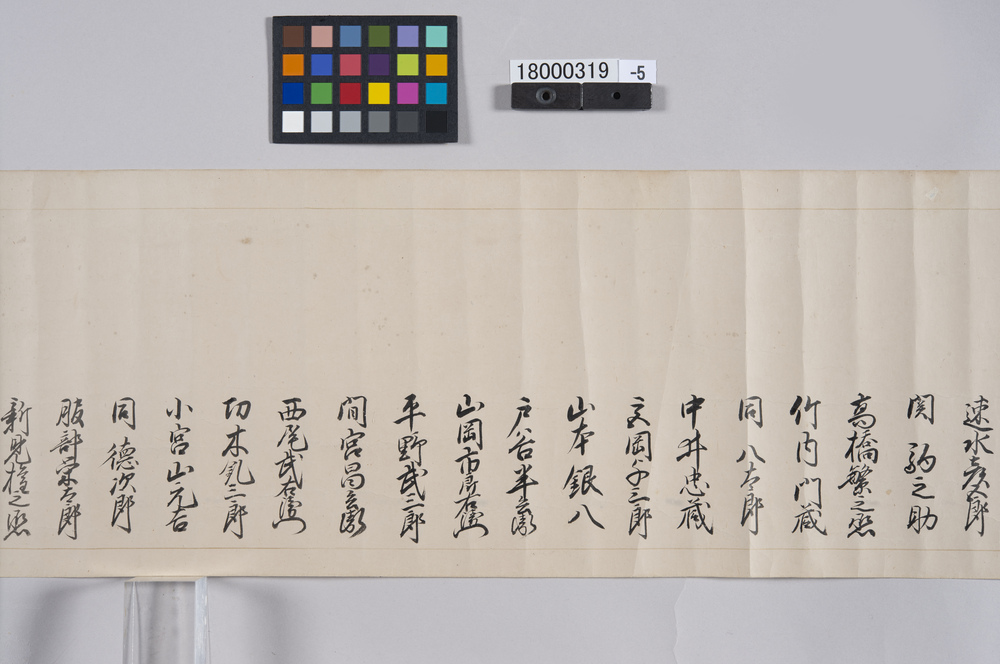 18000319 -5
速水三郎
関 駒之助
高橋繁之丞
竹内門蔵
同 八十郎
中井忠蔵
岡手三郎
山本銀八
戸谷半兵衛
山岡市郎右衛門
平野武三郎
間宮昌兵衛
西尾武右衛門
切木九三郎
小宮山元吉
同 德次郎
服部宗十郎
新見権之丞